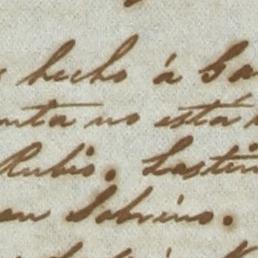 hecho á Ga
nta no está
Rubio. Lasti
en Sobrino.